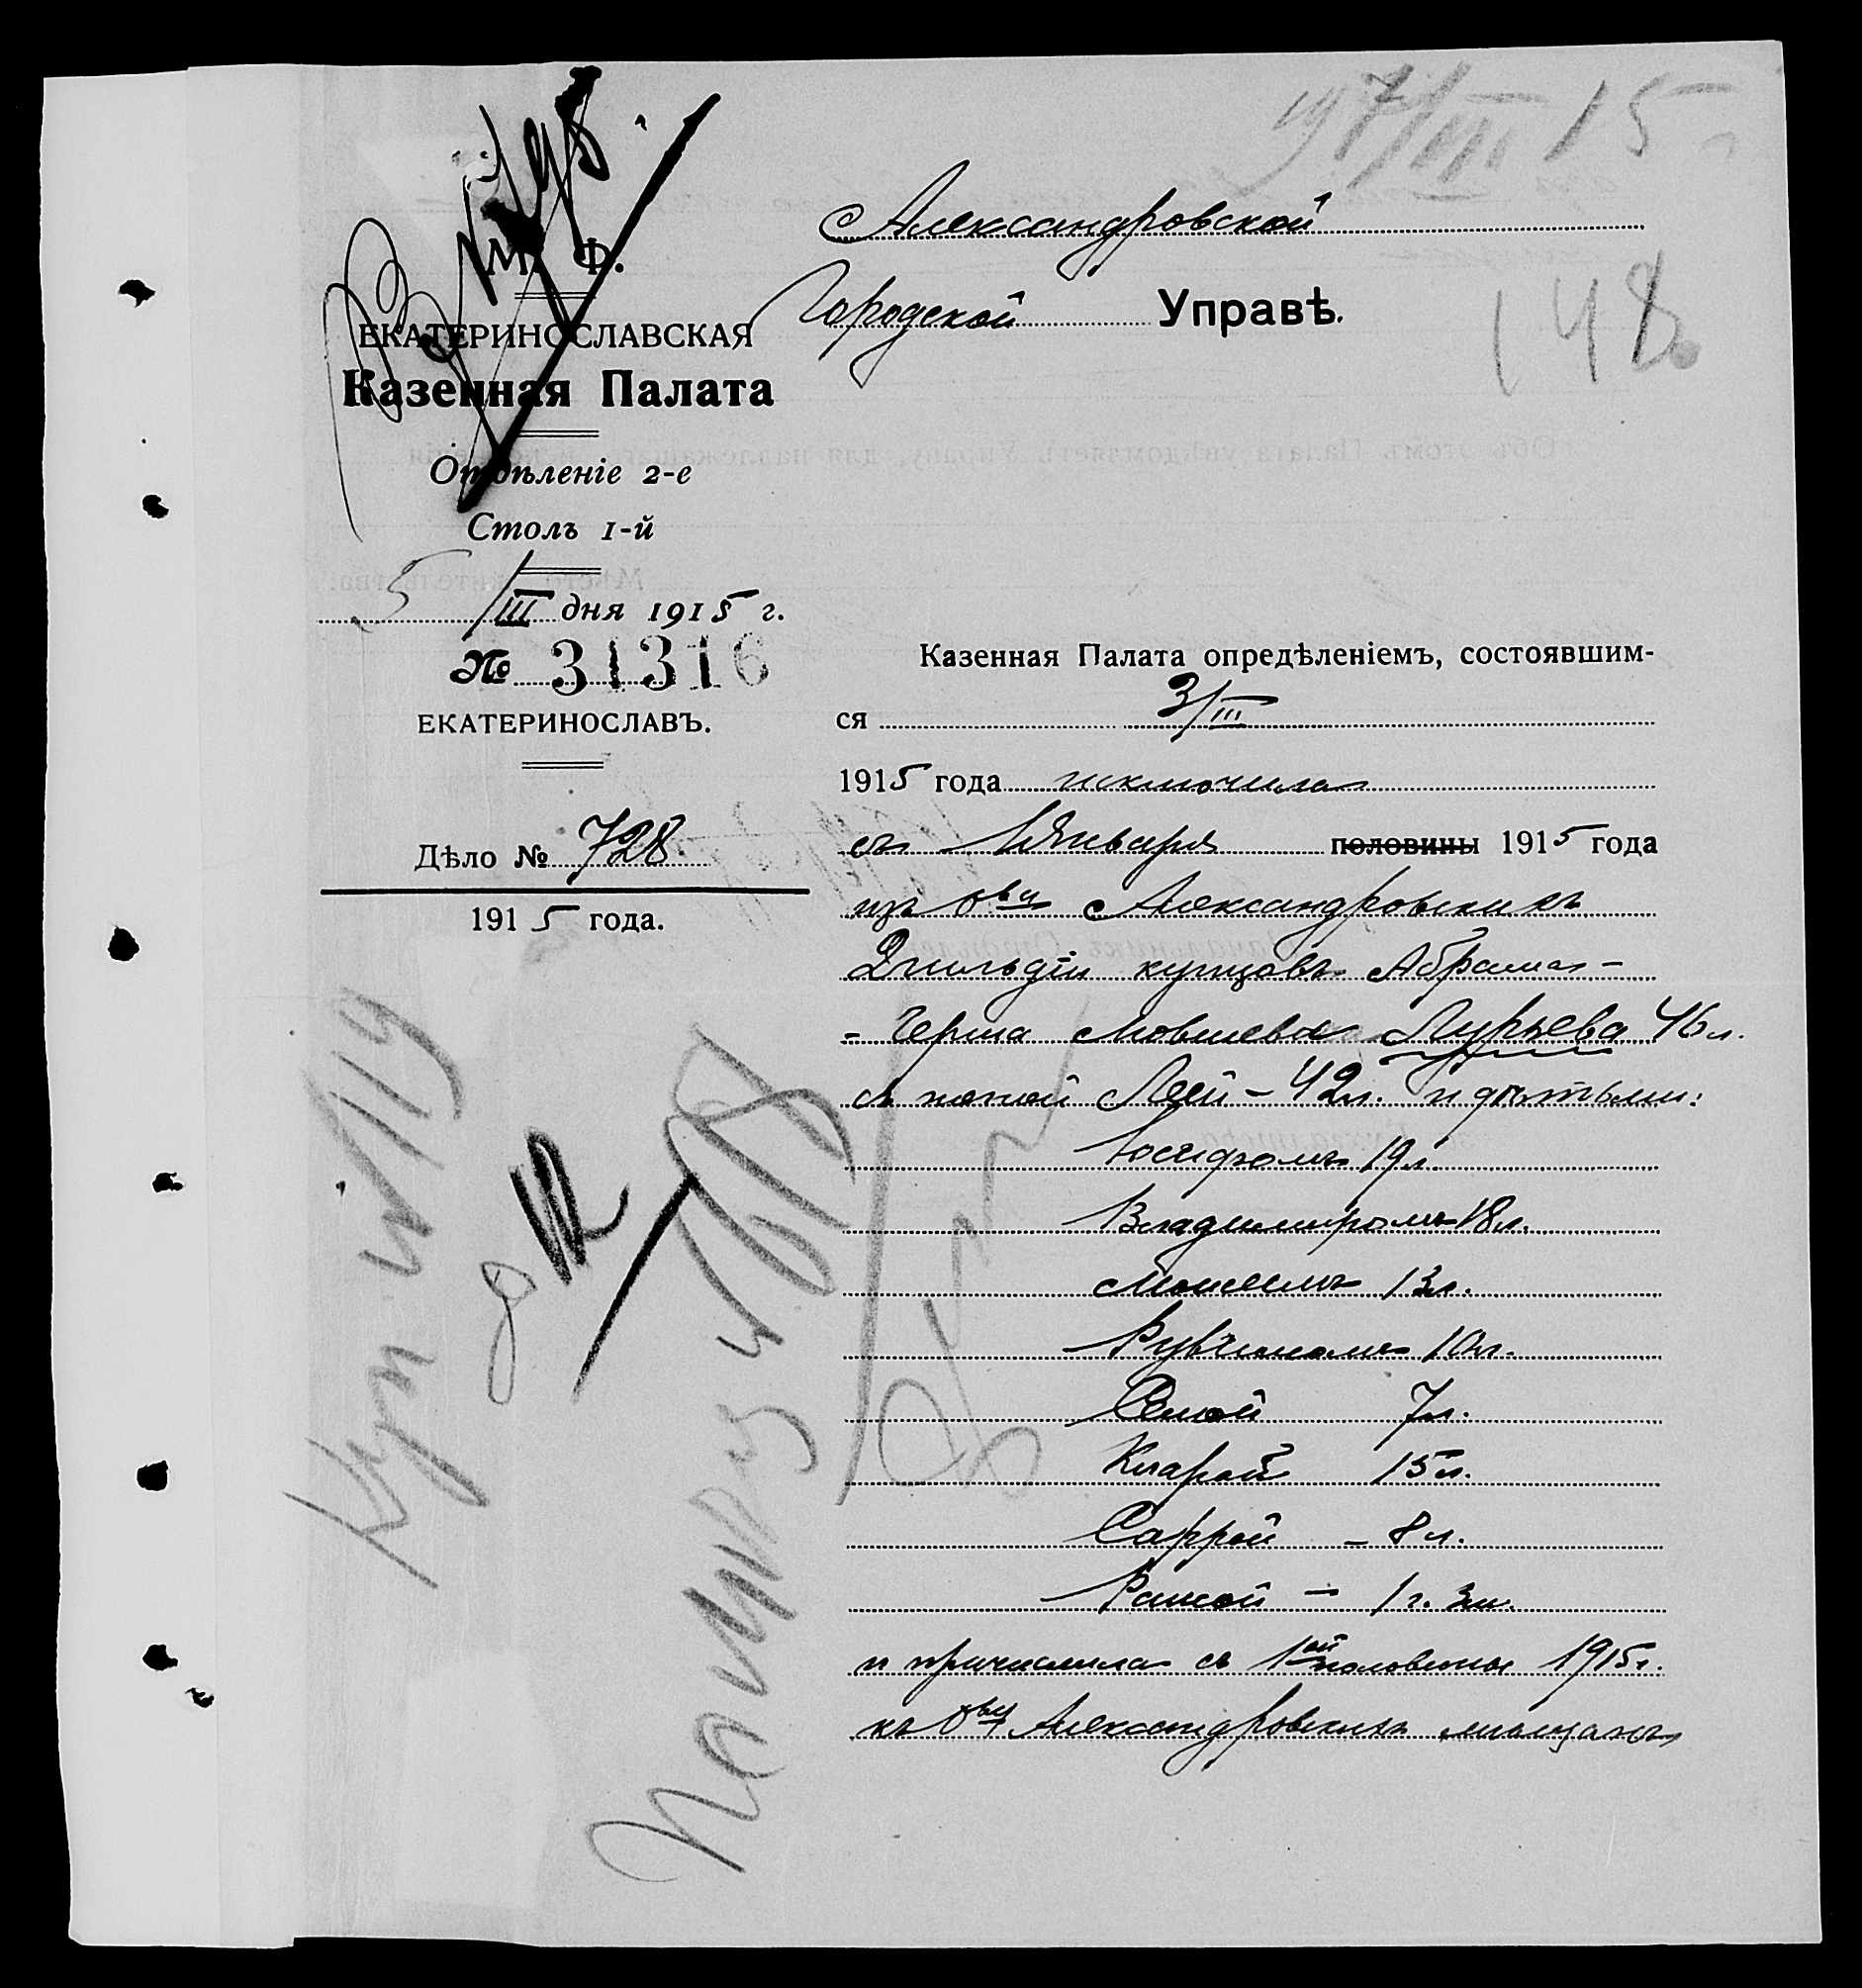 97/III 15 г
148.
М. Ф.
ЕКАТЕРИНОСЛАВСКАЯ
Казенная Палата
Отдѣленіе 2-е
Столъ 1-й
5/III дня 1915 г.
№ 31316
ЕКАТЕРИНОСЛАВЪ.
Дѣло № 728.
1915 года.
Александровской
Городской Управѣ.
Казенная Палата опредѣленіемъ, состоявшим-
ся 3/III
1915 года исключила
съ 1 Января половины 1915 года
изъ о-ва Александровскихъ
2 гильдіи купцовъ Абрама-
-Герша Мовшева Лурьева 46 л.
съ женой Леей - 42 л. и дѣтьми:
Іосифомъ 19 л.
Владимиромъ 18 л.
Моисеемъ 13 л.
Рувимомъ 10 л.
7 л.
Кларой 15 л.
Саррой - 8 л.
1 г. 3 м.
и причислила съ 1ой половины 1915 г.
къ о-ву Александровскихъ мѣщанъ